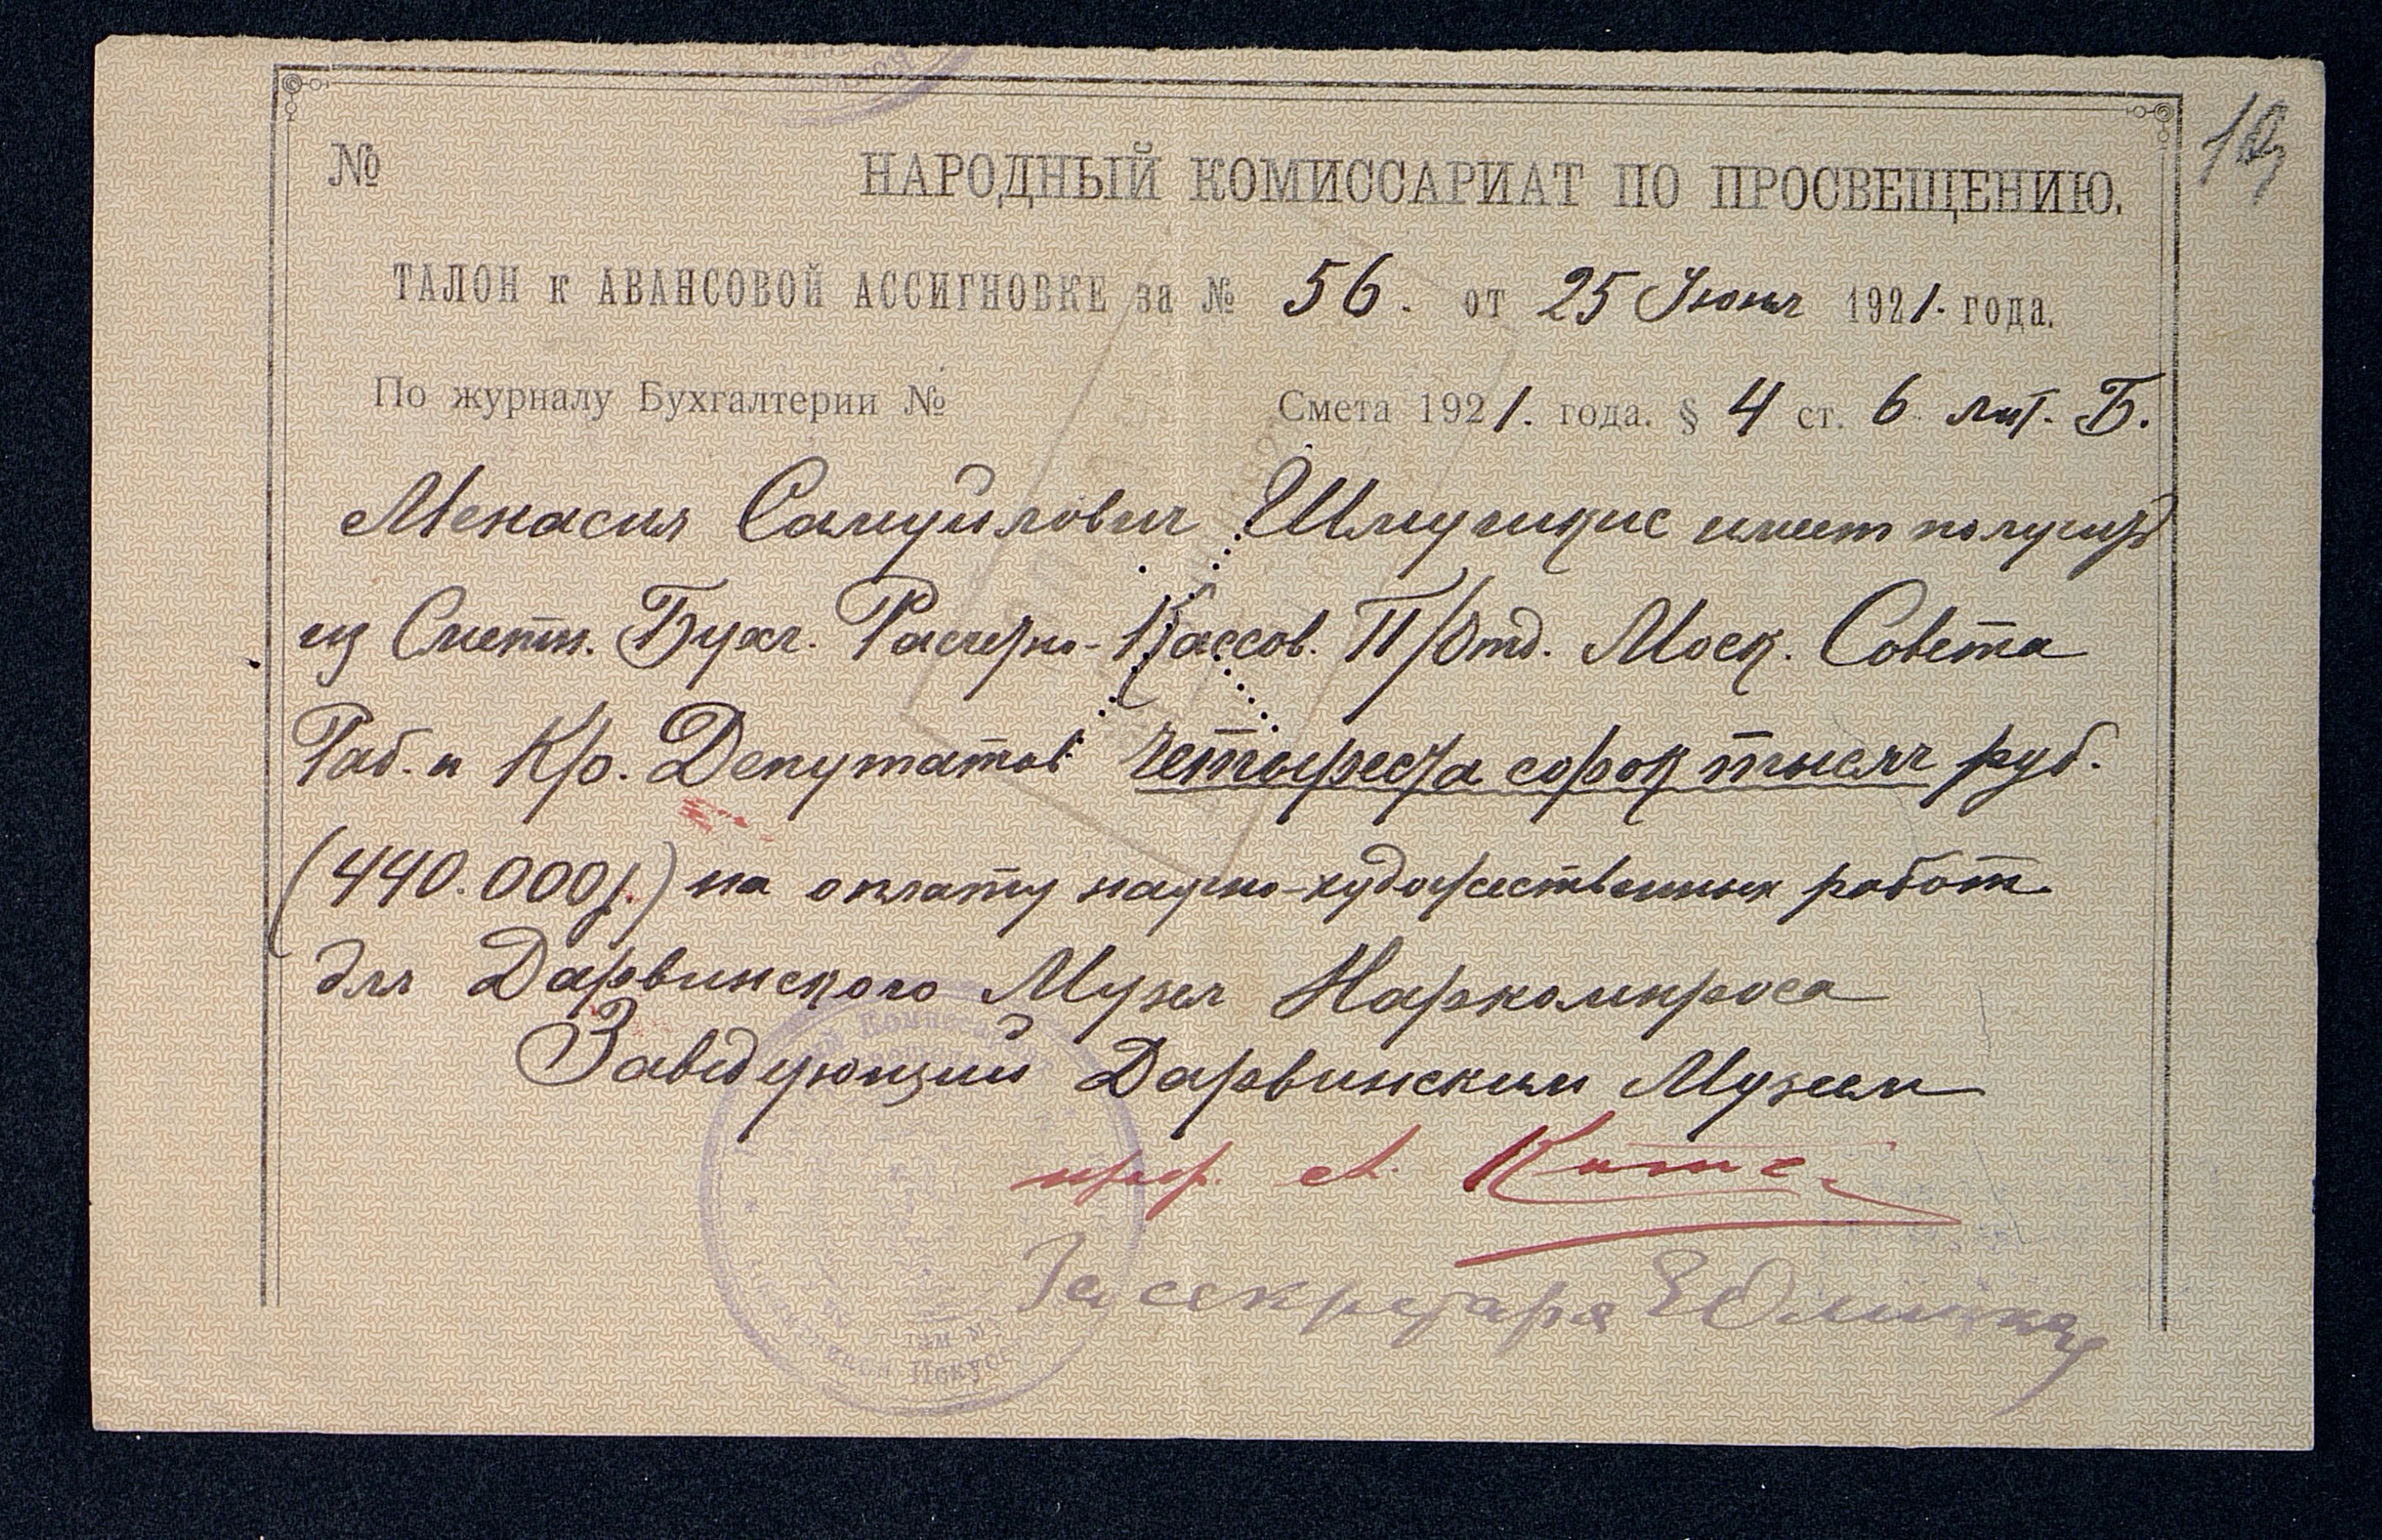 № НАРОДНЫЙ КОМИССАРИАТ ПО ПРОСВЕЩЕНИЮ.
ТАЛОН к АВАНСОВОЙ АССИГНОВКЕ за № 56. от 25 Июня 1921. года.
По журналу Бухгалтерии № Смета 1921. года. § 4 ст. 6 лит. Б.
Менасия Самуйлович Шмушкис имеет получить
из Сметн. Бухг. Расчетно-Кассов. П/Отд. Моск. Совета
Раб. и Кр. Депутатов четыреста сорок тысяч руб.
(440.000р.) на оплату научно-художественных работ
для Дарвинского Музея Наркомпроса
Заведующий Дарвинским Музеем
проф. А. Котс
За секретаря